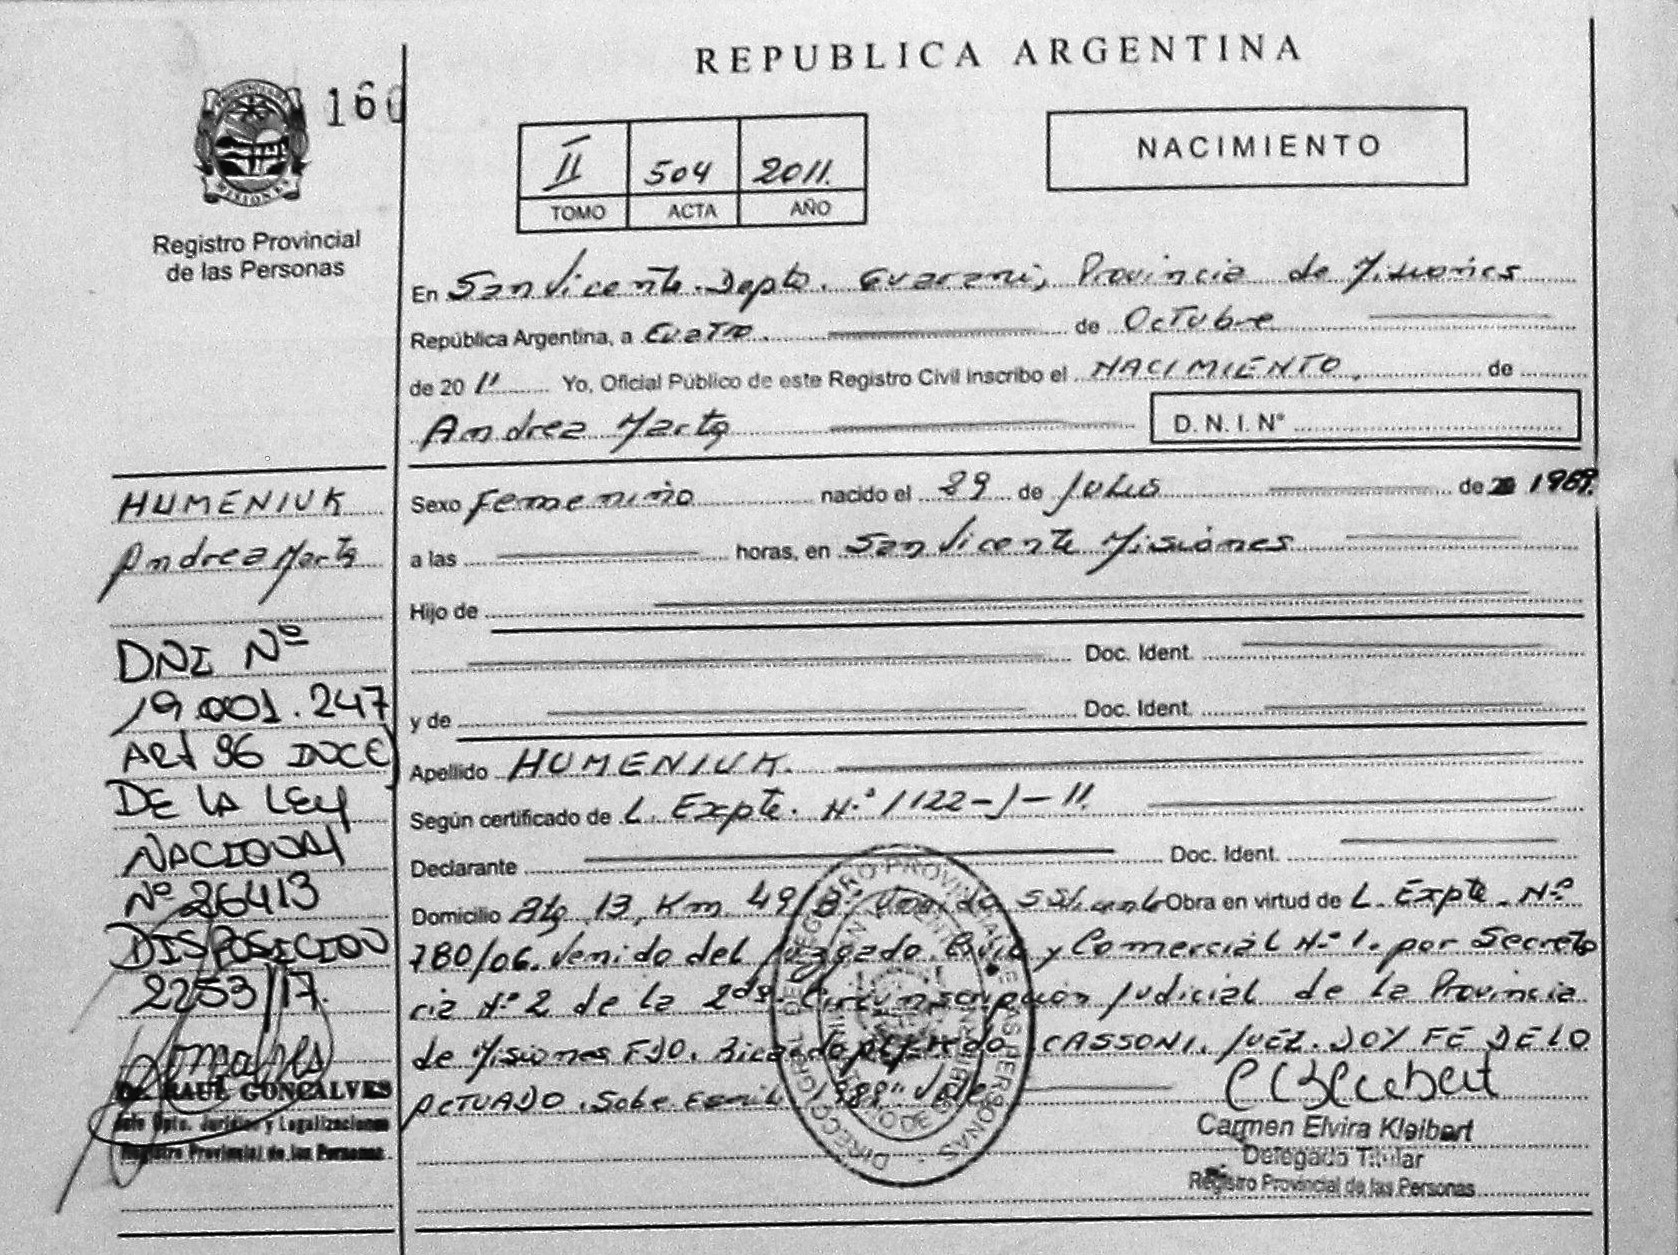 REPUBLICA ARGENTINA
160
NACIMIENTO
II 504 2011.
TOMO ACTA AÑO
MISIONES
Registro Provincial
de las Personas
En San Vicente. Depto. Guarani, Provincia de Misiones
República Argentina, a Cuatro. de Octubre
de 20 11 Yo, Oficial Público de este Registro Civil inscribo el NACIMIENTO, de
Andrea Marta
D. N. I. N°
HUMENIUK
Andrea Marta
DNI Nº
19.001.247
ART 96 DOCE
DE LA LEY
NACIONAL
Nº 26413
DISPOSICION
2253/17.
Dr. RAUL GONCALVES
Jefe Dpto. Jurídico y Legalizaciones
Registro Provincial de las Personas
Sexo Femenino nacido el 29 de Julio de 1989.
a las horas, en San Vicente Misiones
Hijo de
Doc. Ident.
y de Doc. Ident.
Apellido HUMENIUK.
Según certificado de L. Expte. N.º 1122-J-11.
Declarante Doc. Ident.
Domicilio Km 49 Obra en virtud de L. Expte. N.º
780/06. Venido del Juzgado Civil y Comercial N.º 1. por Secreta
ria N.º 2 de la 2da. Circunscripción Judicial de la Provincia
de Misiones FDO. Ricardo CASSONI. JUEZ. DOY FE DE LO
ACTUADO. Sobre Vale
Carmen Elvira Kleibert
Delegado Titular
Registro Provincial de las Personas